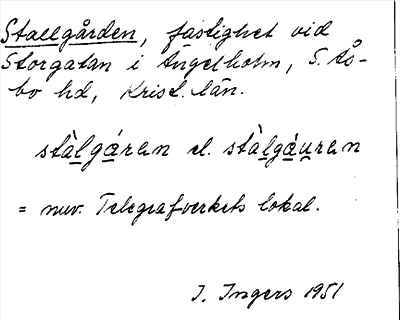 Stallgården, fastighet vid
Storgatan i Ängelholm, S. Ås-
bo hd, Krist. län.
stàl̲gá̲ren el. stàl̲gá̲u̲ren
= nuv. Telegrafverkets lokal.
I. Ingers 1951